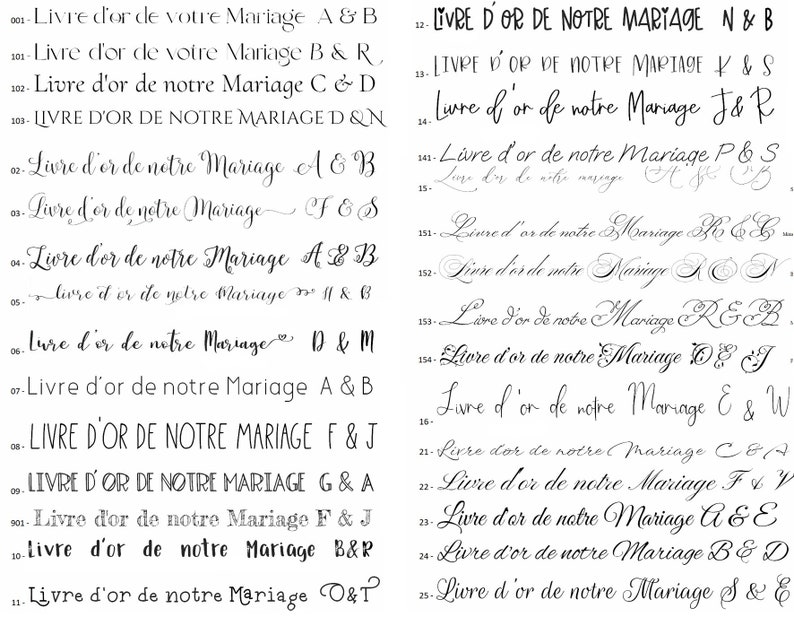 001 - Livre d'or de votre Mariage A & B
101 - Livre d'or de votre Mariage B & R
102 - Livre d'or de notre Mariage C & D
103 - LIVRE D'OR DE NOTRE MARIAGE D & N
02 - Livre d'or de notre Mariage A & B
03 - Livre d'or de notre Mariage F & S
04 - Livre d'or de notre Mariage A & B
05 - livre d'or de notre Mariage A & B
06 - Livre d'or de notre Mariage D & M
07 - Livre d'or de notre Mariage A & B
08 - LIVRE D'OR DE NOTRE MARIAGE F & J
09 - LIVRE D'OR DE NOTRE MARIAGE G & A
901 - Livre d'or de notre Mariage F & J
10 - Livre d'or de notre Mariage B&R
11 - Livre d'or de notre Mariage O&T
12 - LIVRE D'OR DE NOTRE MARIAGE N & B
13 - LIVRE D'OR DE NOTRE MARIAGE K & S
14 - Livre d'or de notre Mariage J & R
141 - Livre d'or de notre Mariage P & S
15 - Livre d'or de notre mariage A & B
151 - Livre d'or de notre Mariage R & G
152 - Livre d'or de notre Mariage R & N
153 - Livre d'or de notre Mariage R & B
154 - Livre d'or de notre Mariage D & J
16 - Livre d'or de notre Mariage E & W
21 - Livre d'or de notre Mariage C & A
22 - Livre d'or de notre Mariage F & V
23 - Livre d'or de notre Mariage A & E
24 - Livre d'or de notre Mariage B & D
25 - Livre d'or de notre Mariage S & E